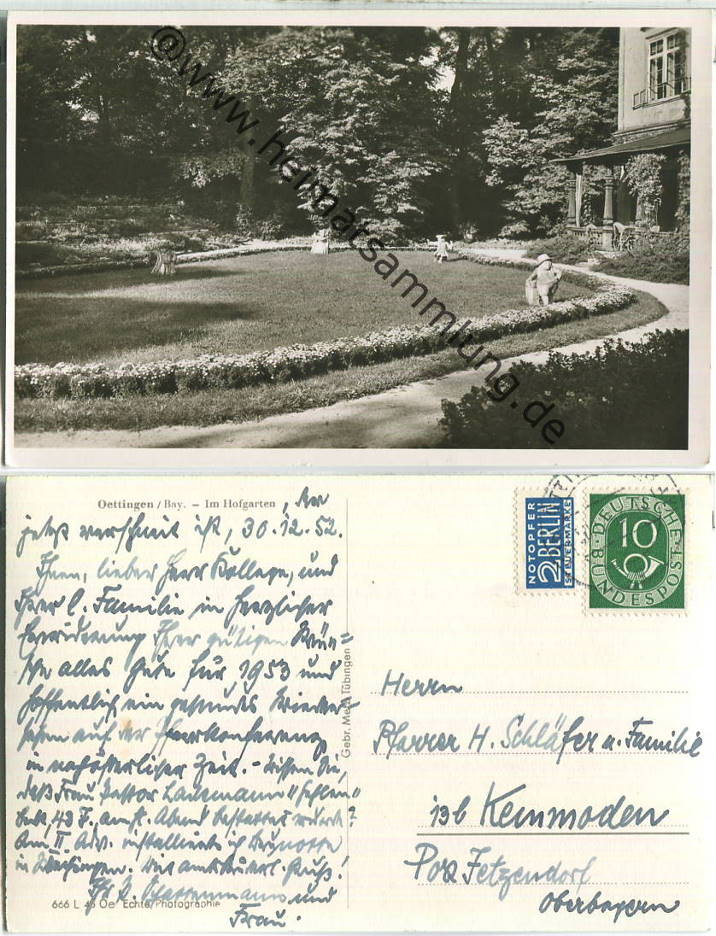 © www.heimatsammlung.de
Oettingen / Bay. – Im Hofgarten „der
jetzt verschneit ist, 30.12.52.
Ihnen, lieber Herr Kollege, und
Ihrer l. Familie in herzlicher
Erwiderung Ihrer gütigen Wün=
sche alles Gute für 1953 und
hoffentlich ein gesundes Wieder=
sehen auf der Pfarrkonferenz
in nachösterlicher Zeit. – Wissen Sie,
daß Frau Pastor
43 J. am Abend bestattet wurde?
Am II. Adv. installierte ich
in Mit Gruß!
Ihr und
Frau.
666 L 46 Oe Echte Photographie
Gebr. Metz Tübingen
NOTOPFER
2 BERLIN
STEUERMARKE
DEUTSCHE
10
BUNDESPOST
Herrn
Pfarrer H. Schläfer u. Familie
13b Kemmoden
Post Jetzendorf
Oberbayern